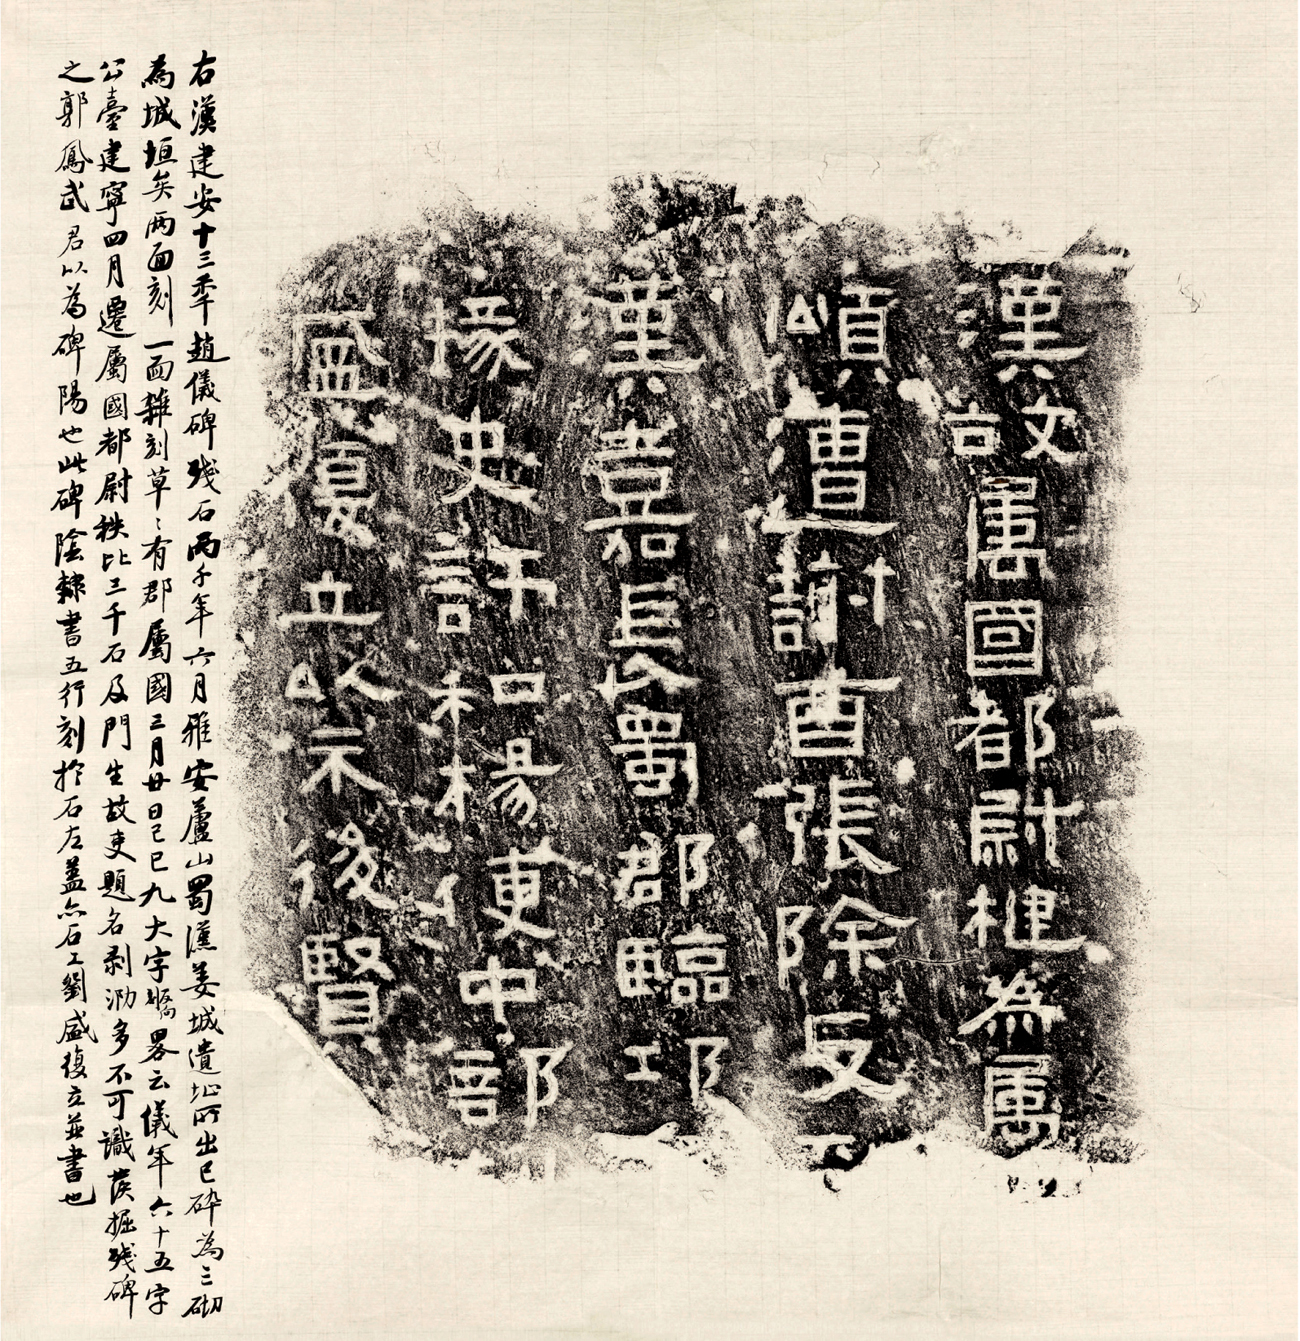 漢故屬國都尉楗為屬
須遭謝酉張除反
漢嘉長蜀郡臨邛
掾史許和楊更中部
盛復立以示後賢
右漢建安十三年趙儀碑殘石兩千年六月雅安蘆山蜀漢姜城遺址所出已碎為三砌
為城垣矣兩面刻一面雜刻草〻有郡屬國三月廿日己巳九大字觿畧云儀年六十五字
公臺建寧四月遷屬國都尉秩比三千石及門生故吏題名剥泐多不可識發掘殘碑
之郭鳳武君以為碑陽也此碑陰隸書五行刻於石左蓋亦石工劉盛復立並書也